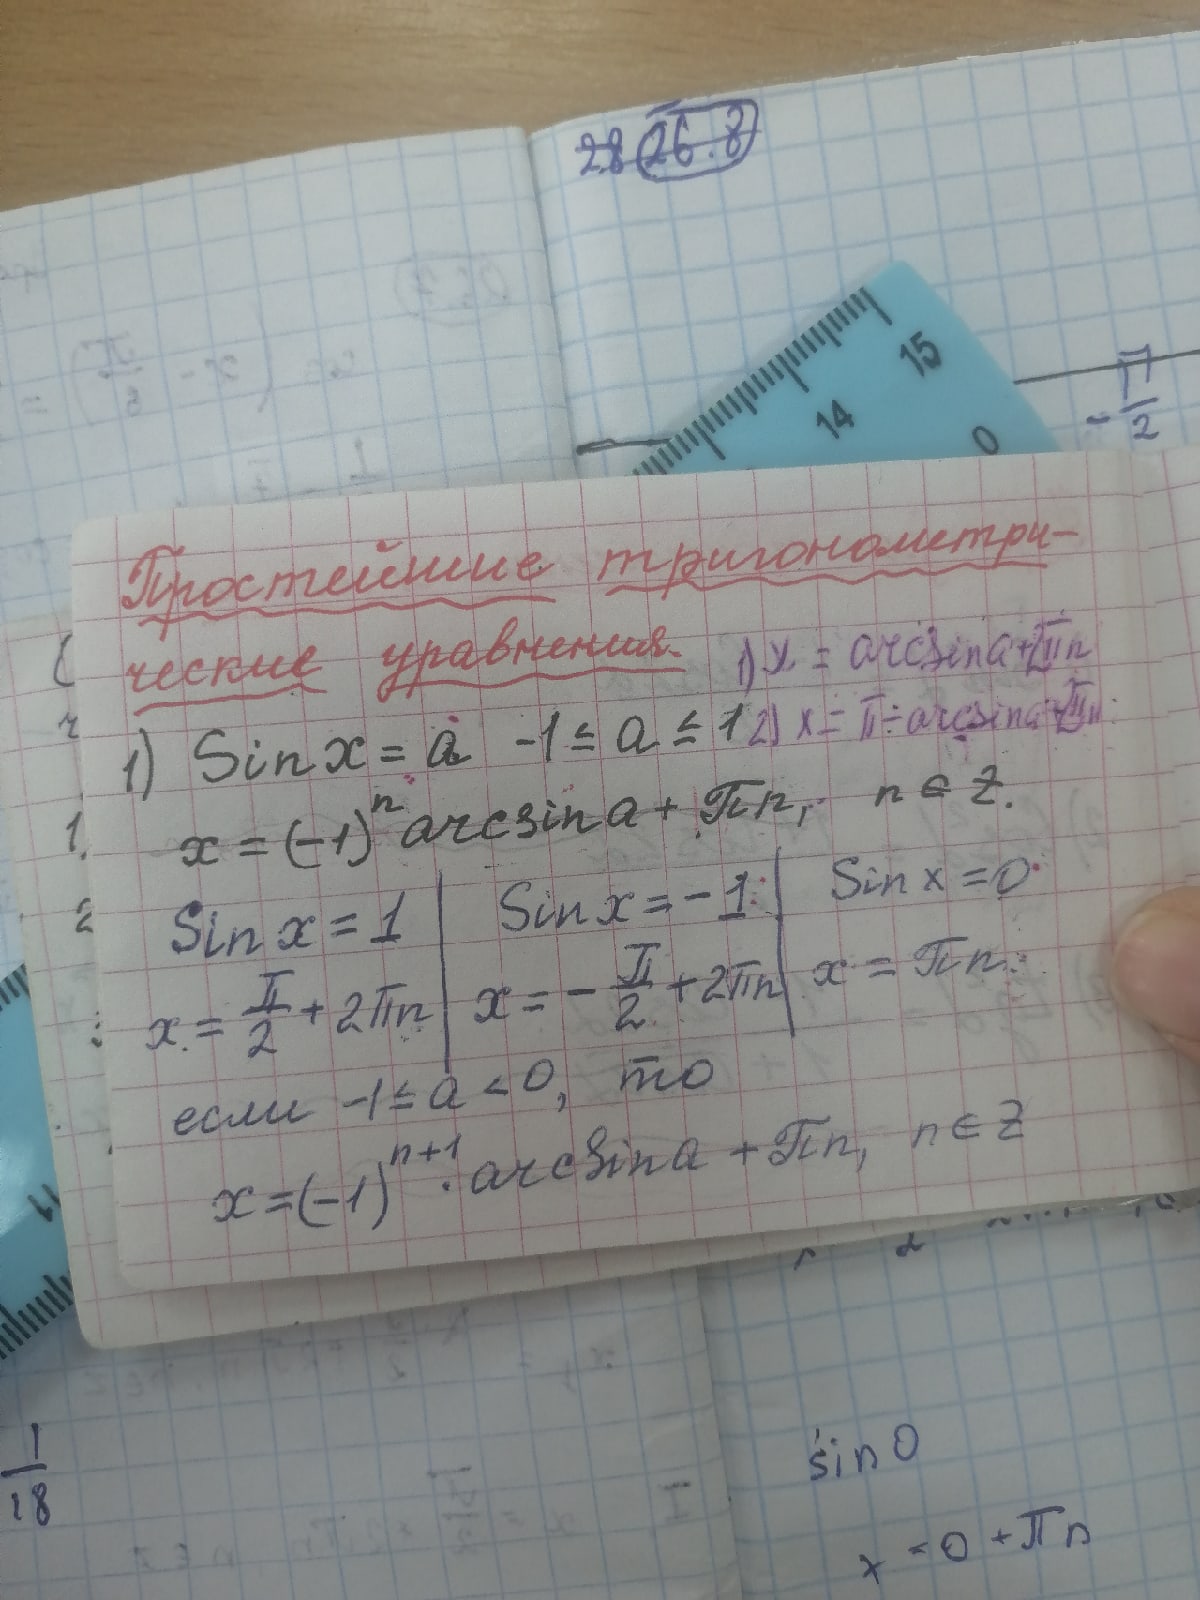 28 26.8
15
14
0
- π/2
Простейшие тригонометри-
ческие уравнения.
1) x = arcsin a + 2πn
2) x = π - arcsin a + 2πn
1) Sin x = a -1 ≤ a ≤ 1
x = (-1)^n arcsin a + πn, n ∈ Z.
Sin x = 1 | Sin x = -1 | Sin x = 0
x = π/2 + 2πn | x = - π/2 + 2πn | x = πn
если -1 ≤ a < 0, то
x = (-1)^(n+1) · arcsin a + πn, n ∈ Z
1/18
sin 0
x = 0 + πn